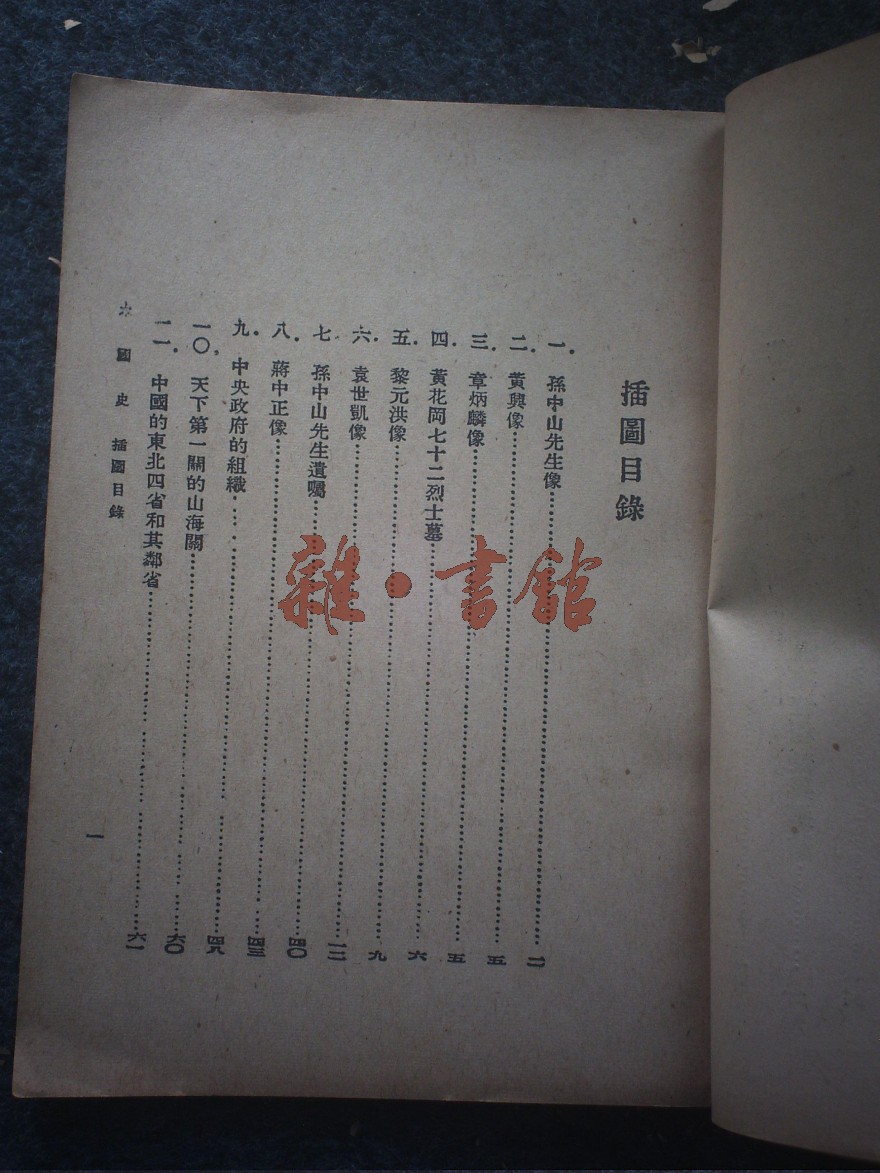 插圖目錄
一．孫中山先生像……二
二．黃興像……五
三．章炳麟像……五
四．黃花岡七十二烈士墓……六
五．黎元洪像……九
六．袁世凱像……一二
七．孫中山先生遺囑……四〇
八．蔣中正像……四三
九．中央政府的組織……四八
一〇．天下第一關的山海關……六〇
一一．中國的東北四省和其鄰省……六一
本國史 插圖目錄
一
雜·書館